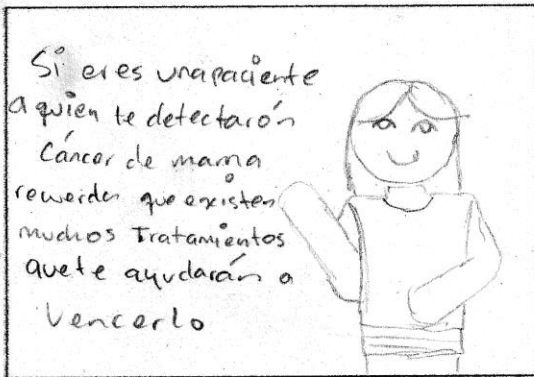 Si eres una paciente
a quien te detectarón
Cáncer de mama
recuerda que existen
muchos Tratamientos
que te ayudarán a
Vencerlo